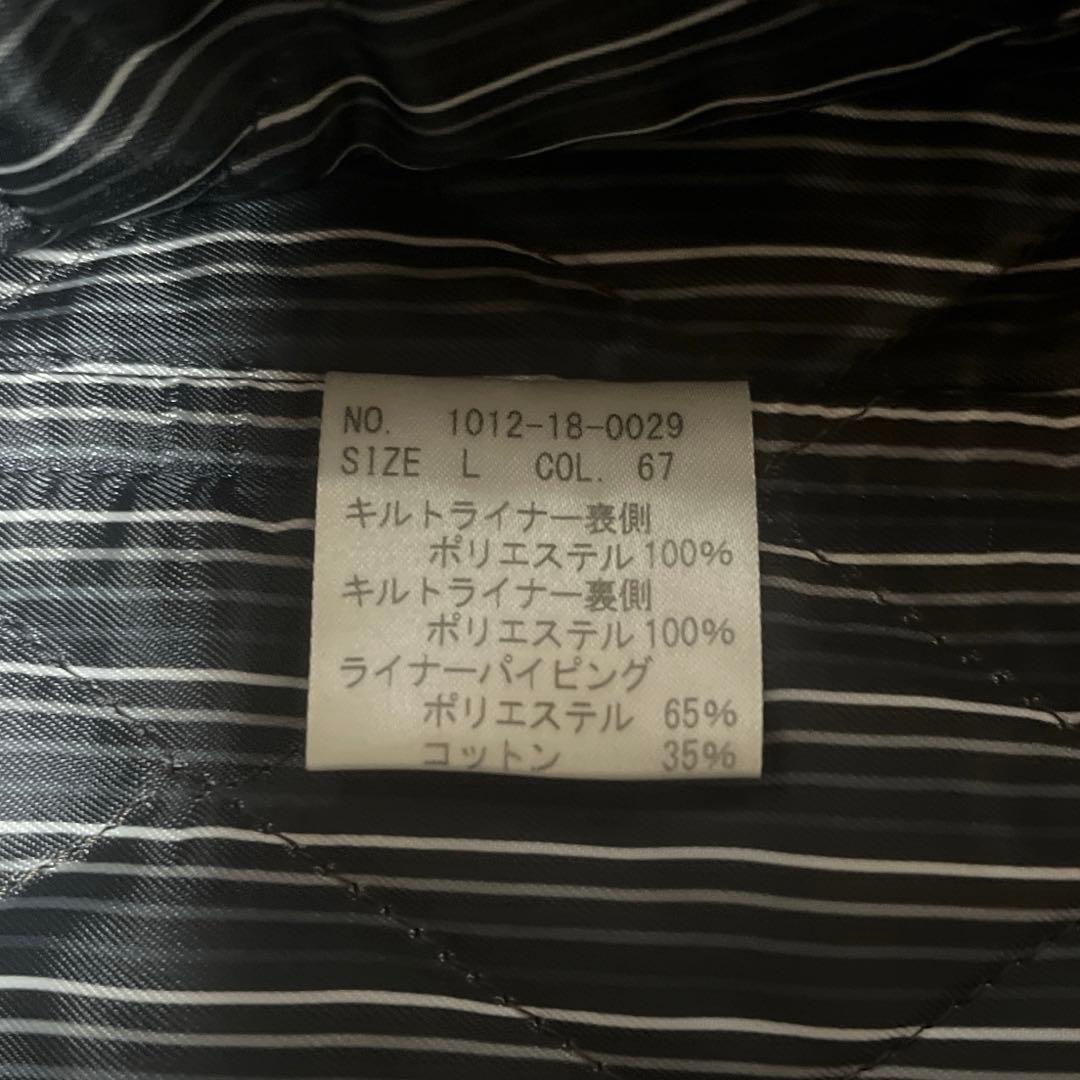 NO. 1012-18-0029
SIZE L COL. 67
キルトライナー裏側
ポリエステル100%
キルトライナー裏側
ポリエステル100%
ライナーパイピング
ポリエステル 65%
コットン 35%